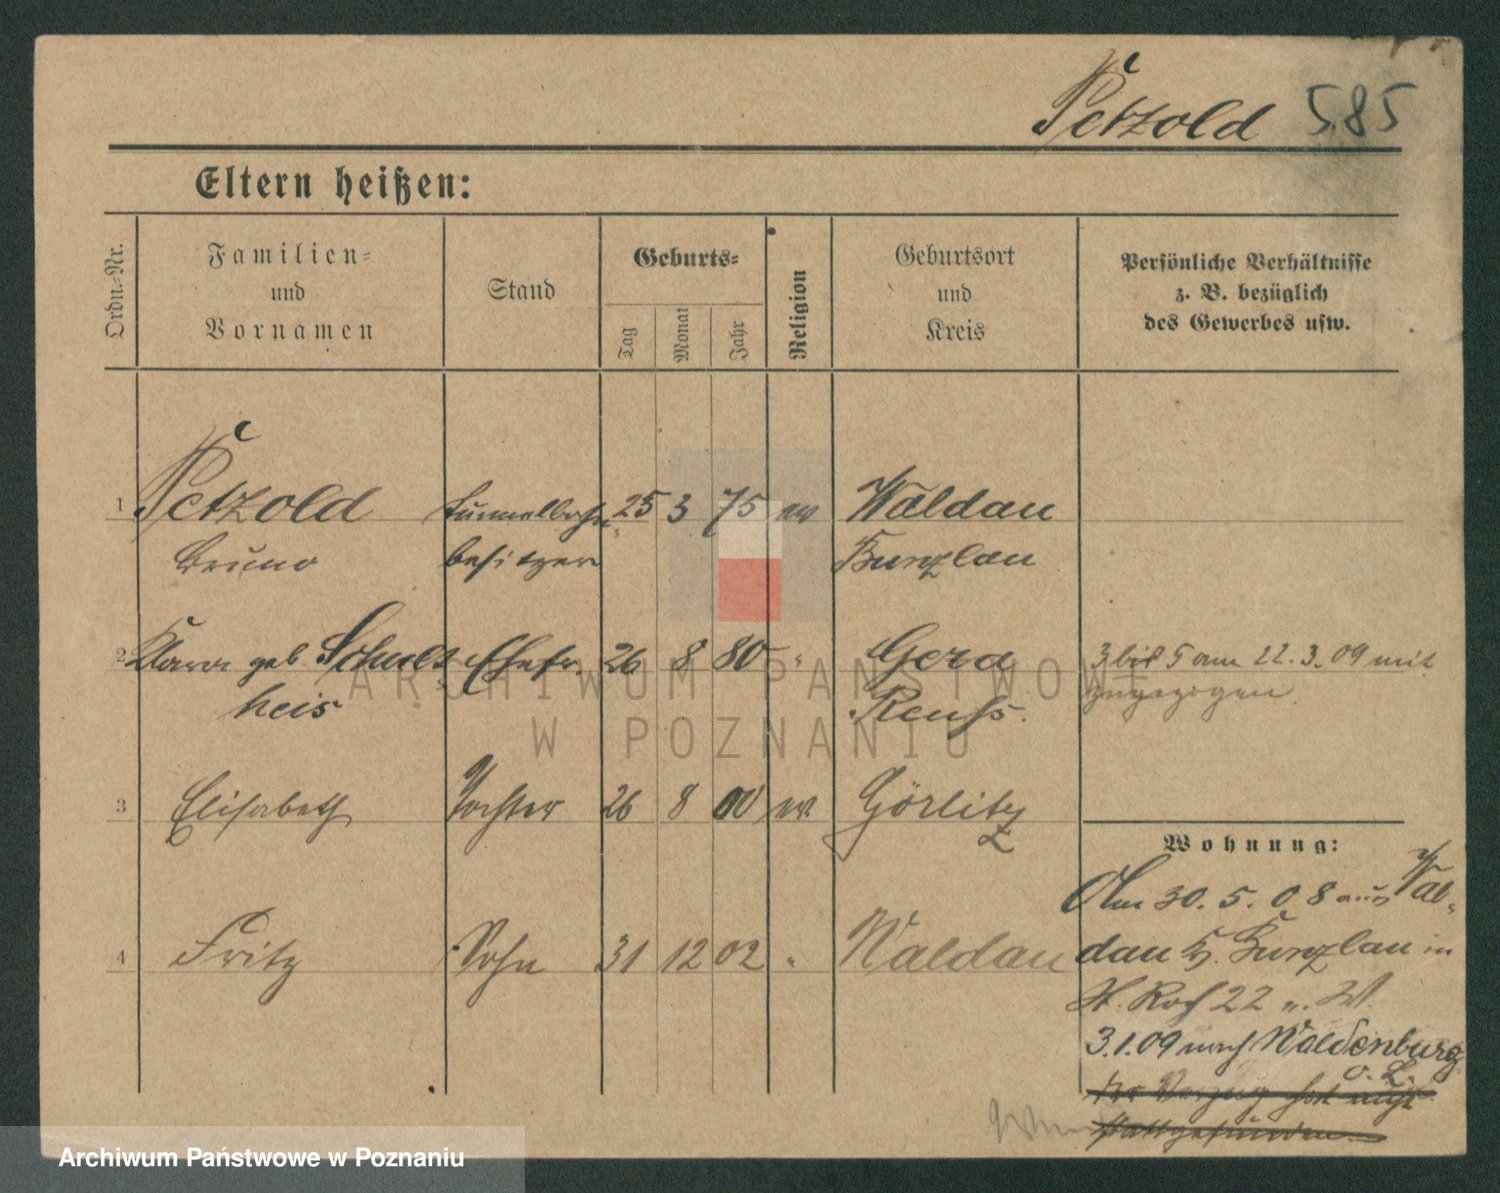 Petzold 585
Eltern heißen:
Ordn.-Nr.
Familien-
und
Vornamen
Stand
Geburts-
Tag
Monat
Jahr
Religion
Geburtsort
und
Kreis
Persönliche Verhältnisse
z. B. bezüglich
des Gewerbes usw.
1 Petzold 25 3 75 ev Waldau
Bruno besitzer Bunzlau
2 Klara geb. Schult Ehefr. 26 8 80 " Gera 3 bis 5 am 22.3.09 mit
heis Reuss. zugezogen.
3 Elisabeth Tochter 26 8 00 ev. Görlitz
Wohnung:
Am 30. 5. 08 aus Wal-
4 Fritz Sohn 31 12 02 " Waldau
dau Kr. Bunzlau in
St. Roch 22 u. W.
3.1.09 nach Waldenburg
Der Verzug hat nicht
stattgefunden.
ARCHIWUM PAŃSTWOWE
W POZNANIU
Archiwum Państwowe w Poznaniu